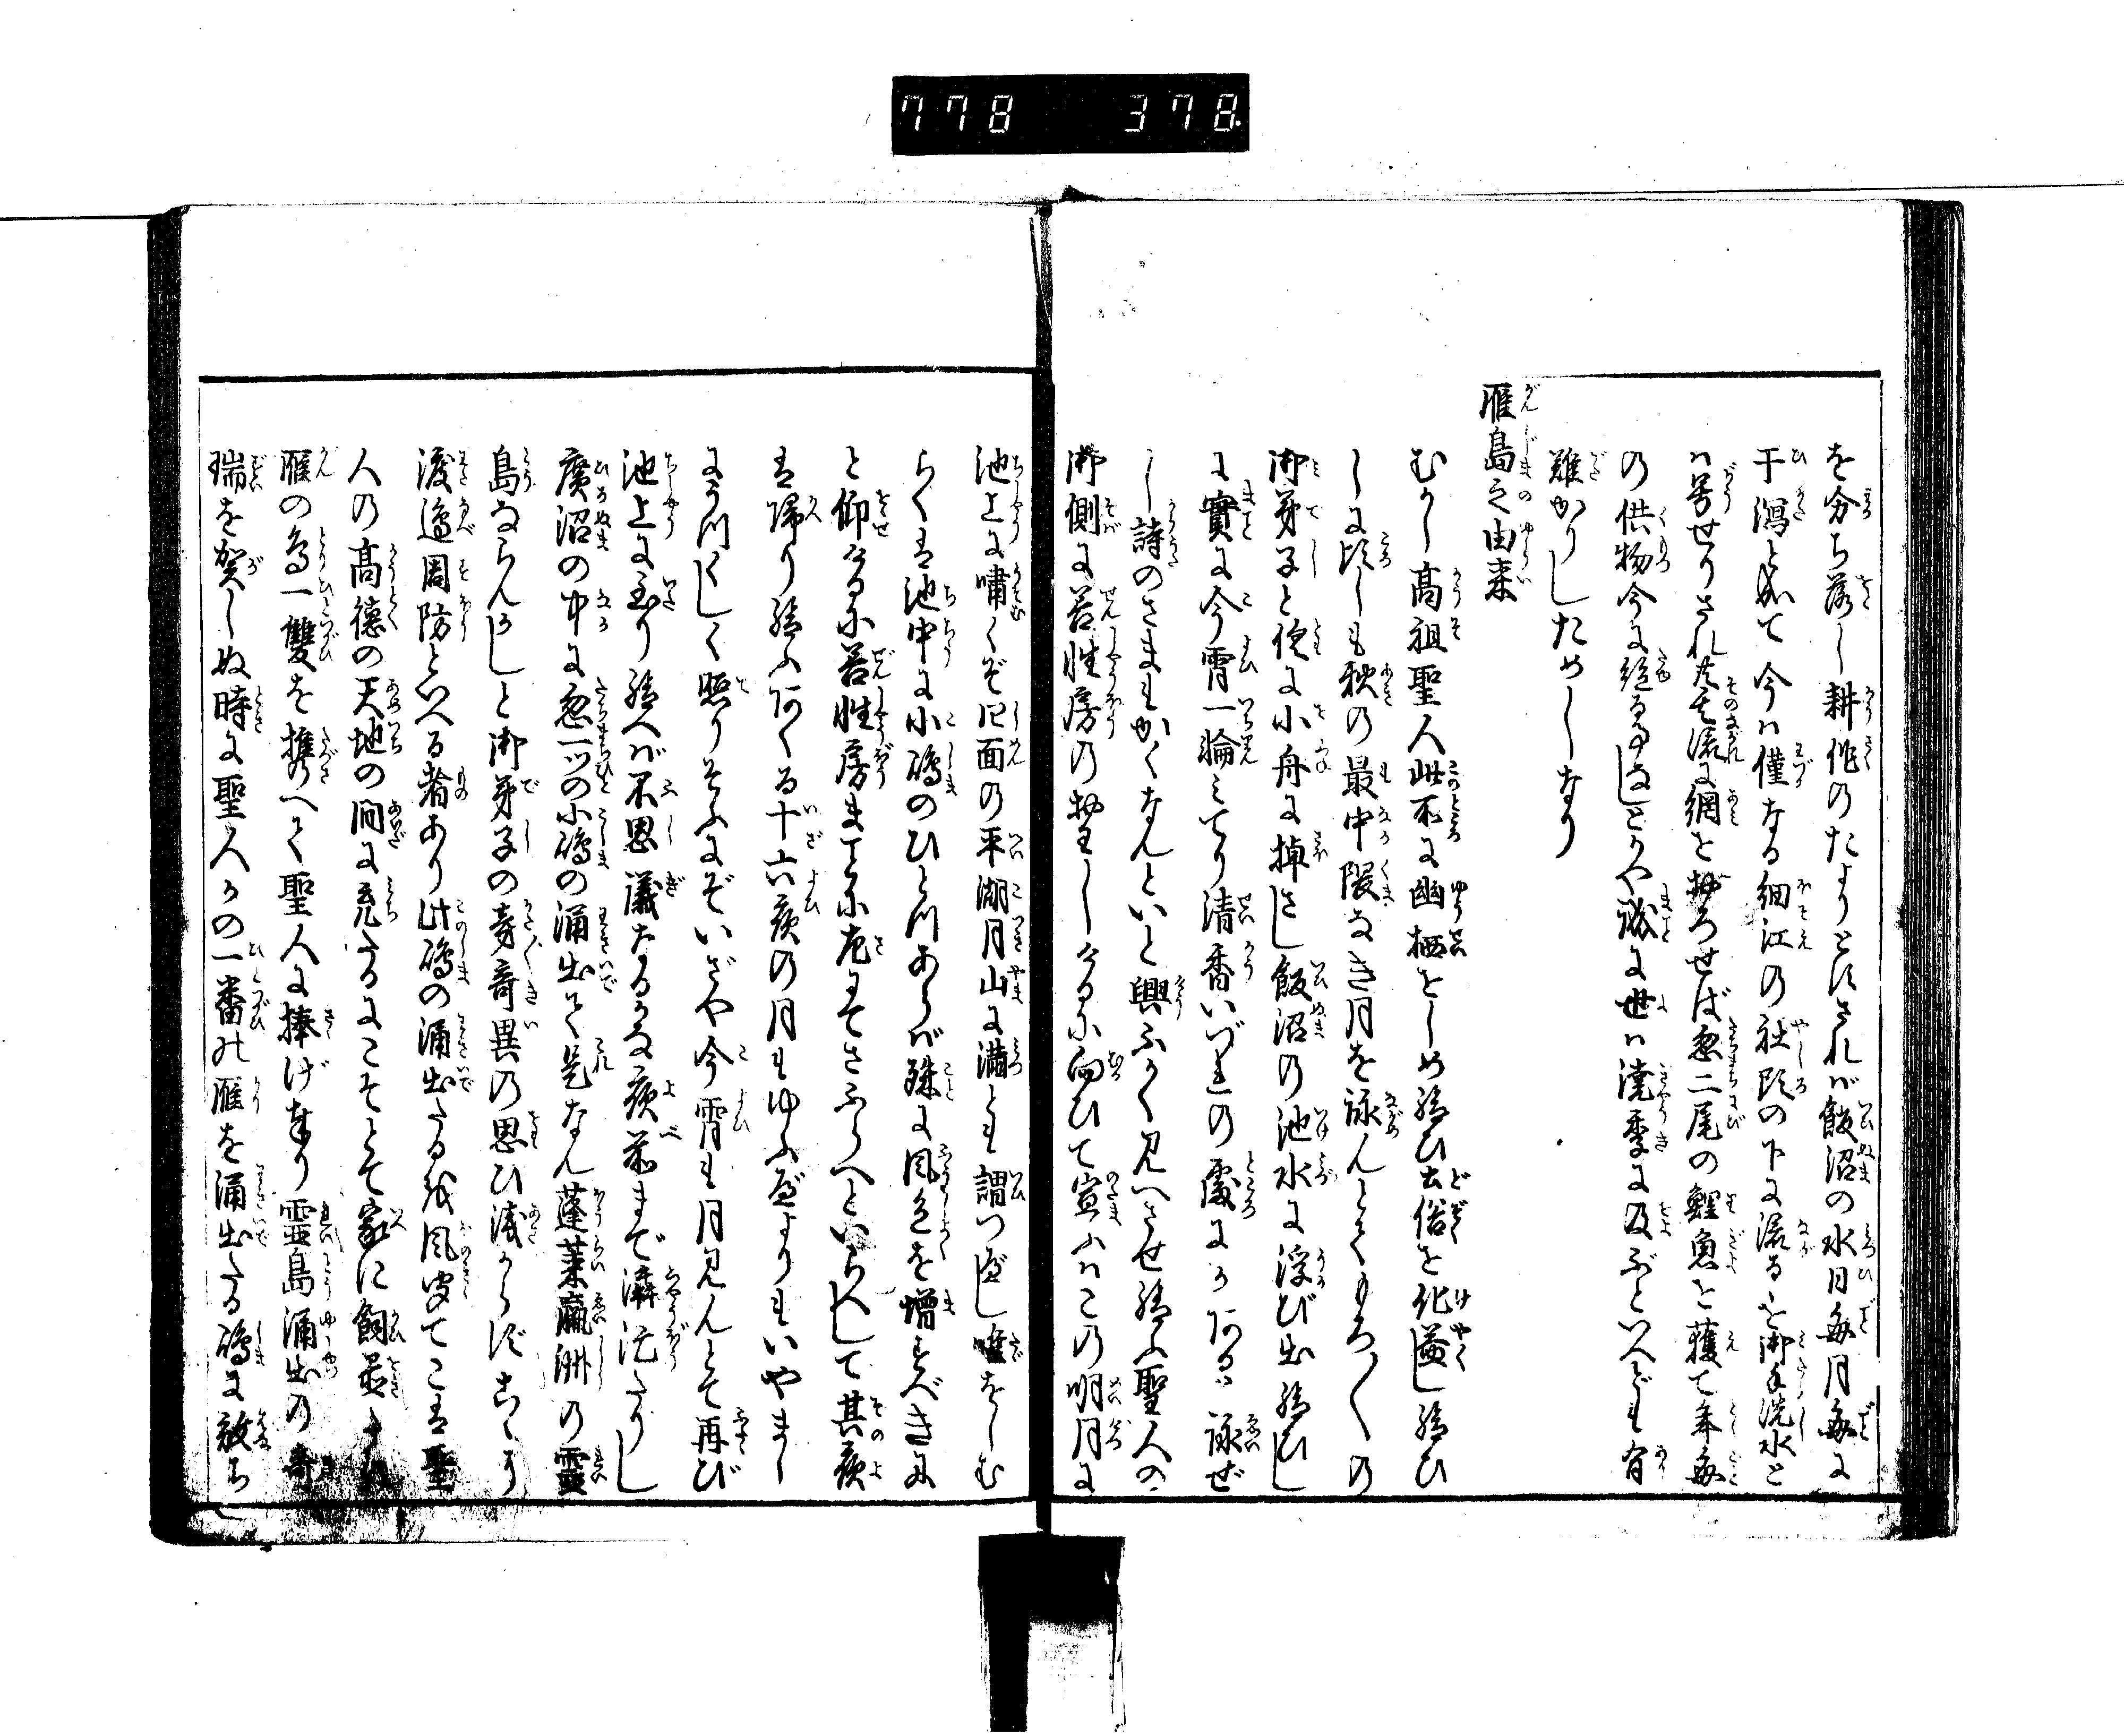 778 378
を分ち落し耕作のたよりとすされば飯沼の水日毎月毎に
干潟と成て今は僅なる細江の社頭の下に流るを御手洗水と
は号せりされ共其流に網を数ろせば忽二尾の鯉魚を獲て年毎
の供物今に絶る事なしとかや誠に世は澆季に及ぶといへども有
難かりしためしなり
雁島之由来
むかし高祖聖人此所に幽栖をしめ給ひ土俗を化益し給ひ
しに頃しも秋の最中隈なき月を詠んとてもろ〳〵の
御弟子と倶に小舟に棹さし飯沼の池水に浮び出給ひし
に實に今霄一輪みてり清香いづれの處にかある詠ぜ
し詩のさまもかくなんといと興ふかく見へさせ給ふ聖人の
御側に善性房の坐しけるに向ひて宣ふはこの明月に
池上に嘯くぞ四面の平湖月山に満とも謂つべし唯をしむ
らくは池中に小嶋のひとつあらば殊に風色を増すべきに
と仰けるに善性房まことに左にてさふらへといらへして其夜
は帰り給ふかくる十六夜の月もゆふべよりもいやまし
にうつくしく照りそふにぞいざや今霄も月見んとて再び
池上に至り給へば不思議なるかな夜前まで漭沱たりし
廣沼の中に忽一ツの小嶋の涌出て是なん蓬莱瀛洲の靈
島ならんかしと御弟子の旁奇異の思ひ浅からずこゝに
渡邉周防といへる者あり此嶋の涌出たる由風聞てこは聖
人の高徳の天地の間に充たるにこそとて家に飼置ける
雁の鳥一雙を携へて聖人に捧げ奉り靈島涌出の奇
瑞を賀しぬ時に聖人かの一番の雁を涌出たる嶋に放ち